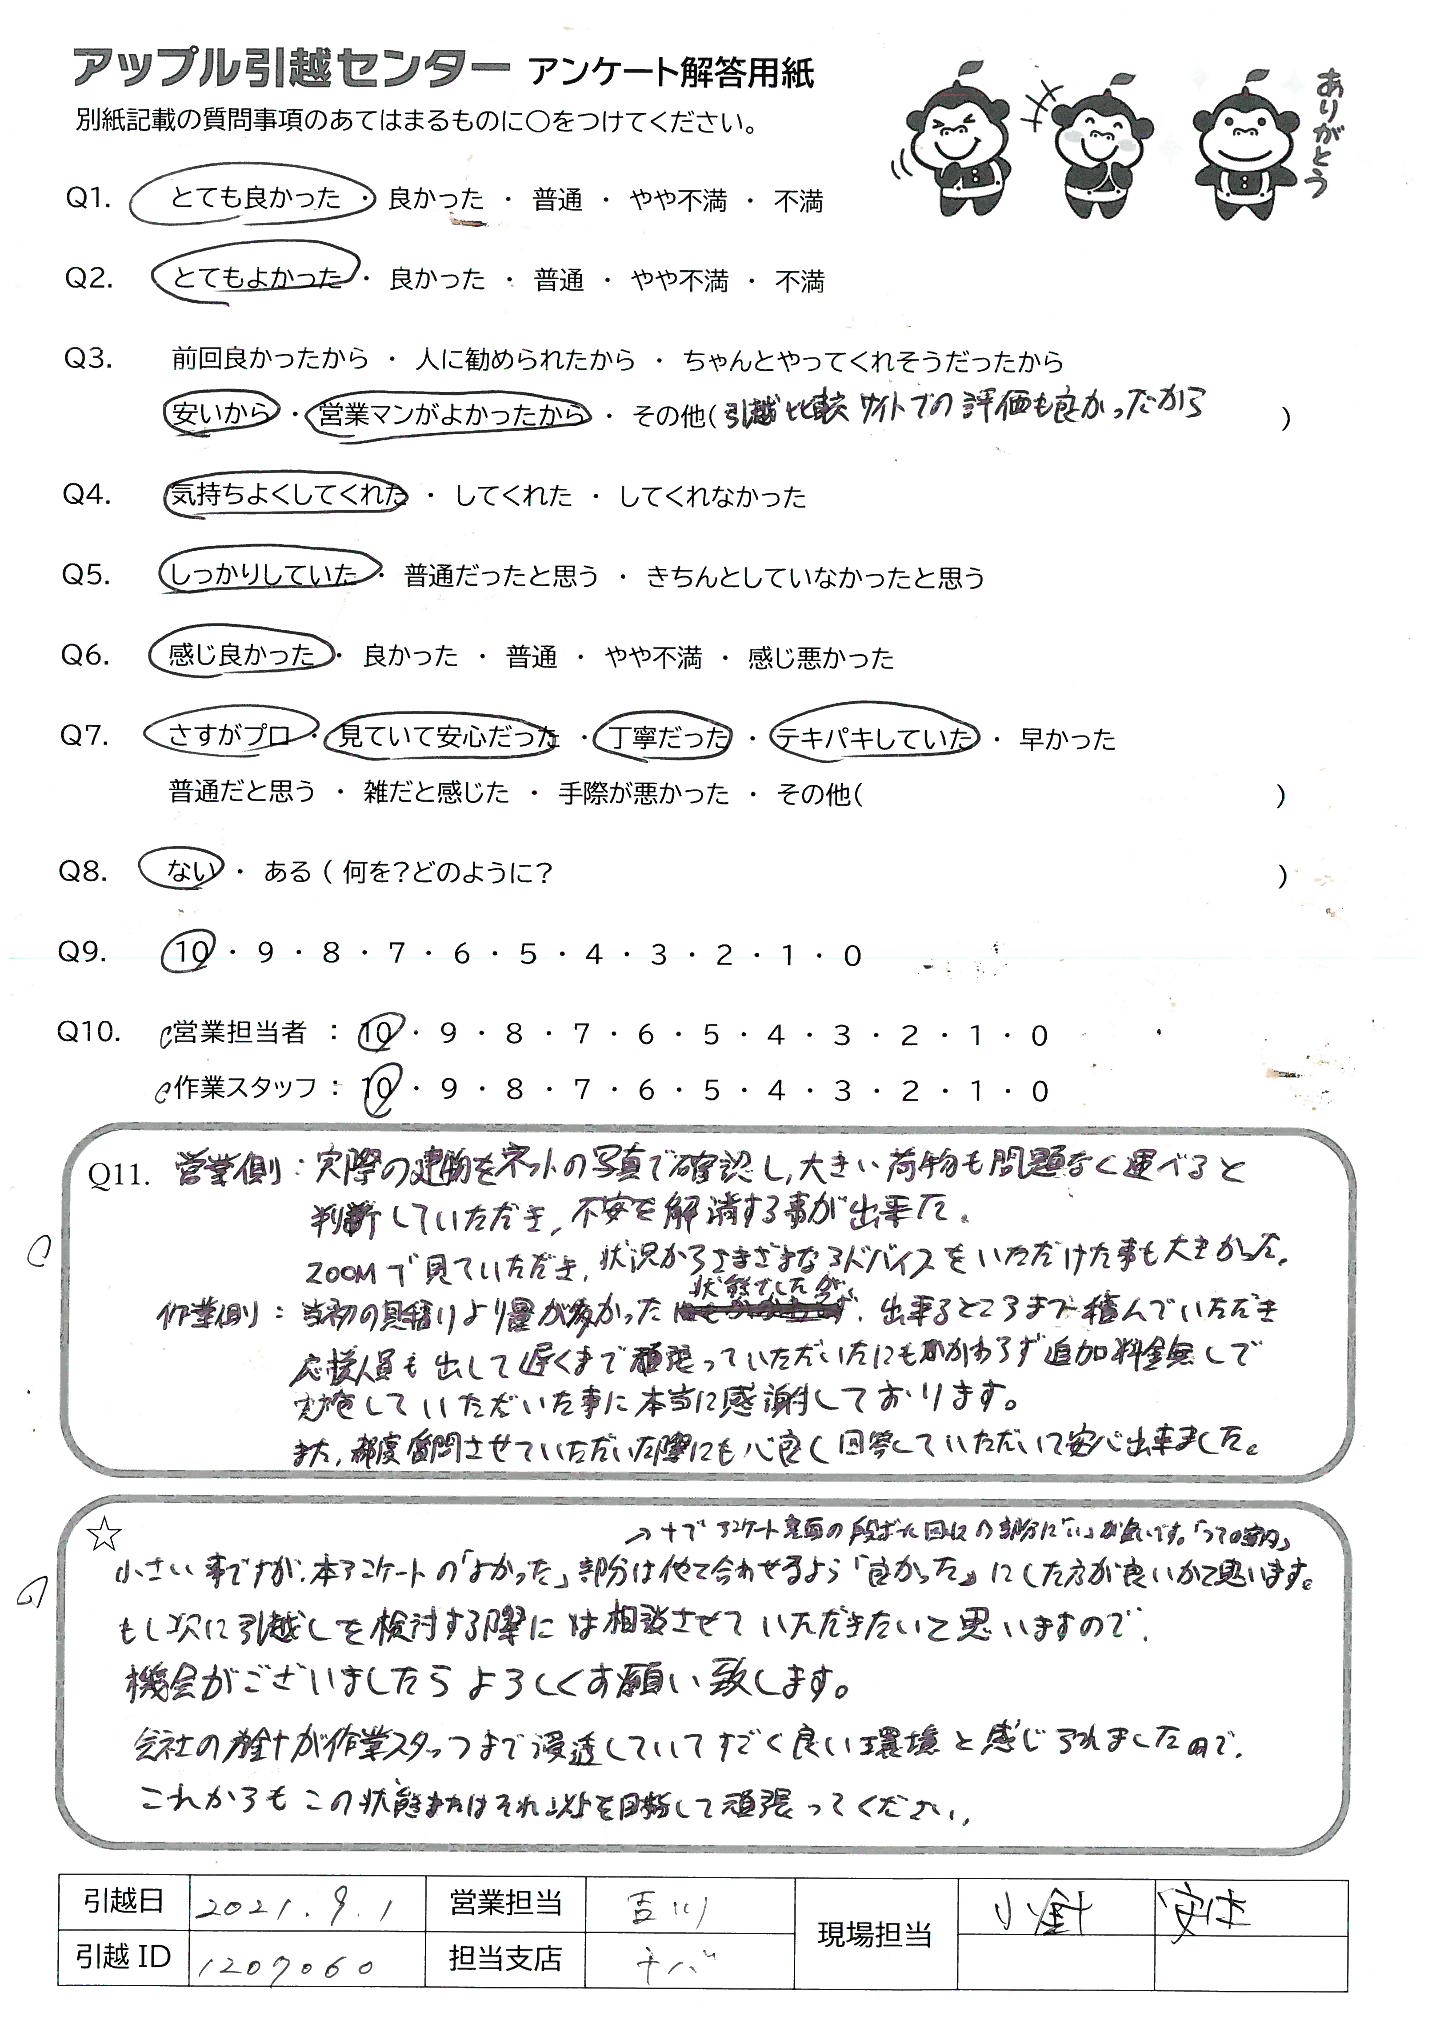 アップル引越センター アンケート解答用紙
別紙記載の質問事項のあてはまるものに○をつけてください。
ありがとう
Q1. とても良かった ・ 良かった ・ 普通 ・ やや不満 ・ 不満
Q2. とてもよかった ・ 良かった ・ 普通 ・ やや不満 ・ 不満
Q3. 前回良かったから ・ 人に勧められたから ・ ちゃんとやってくれそうだったから
安いから ・ 営業マンがよかったから ・ その他( 引越比較サイトでの評価も良かったから )
Q4. 気持ちよくしてくれた ・ してくれた ・ してくれなかった
Q5. しっかりしていた ・ 普通だったと思う ・ きちんとしていなかったと思う
Q6. 感じ良かった ・ 良かった ・ 普通 ・ やや不満 ・ 感じ悪かった
Q7. さすがプロ ・ 見ていて安心だった ・ 丁寧だった ・ テキパキしていた ・ 早かった
普通だと思う ・ 雑だと感じた ・ 手際が悪かった ・ その他( )
Q8. ない ・ ある ( 何を?どのように? )
Q9. 10 ・ 9 ・ 8 ・ 7 ・ 6 ・ 5 ・ 4 ・ 3 ・ 2 ・ 1 ・ 0
Q10. 営業担当者 : 10 ・ 9 ・ 8 ・ 7 ・ 6 ・ 5 ・ 4 ・ 3 ・ 2 ・ 1 ・ 0
作業スタッフ : 10 ・ 9 ・ 8 ・ 7 ・ 6 ・ 5 ・ 4 ・ 3 ・ 2 ・ 1 ・ 0
Q11. 営業側：実際の建物をネットの写真で確認し、大きい荷物も問題なく運べると
判断していただき、不安を解消する事が出来た。
ZOOMで見ていただき、状況からさまざまなアドバイスをいただけた事も大きかった。
作業側：当初の見積りより量が多かった状態でしたが、出来るところまで積んでいただき
応援人員も出して遅くまで頑張っていただいたにもかかわらず追加料金無しで
実施していただいた事に本当に感謝しております。
また、都度質問させていただいた際にも心良く回答していただいて安心出来ました。
☆
→+で アンケート裏面の 回収の部分に「い」が無いです。
小さい事ですが、本アンケートの「よかった」部分は他と合わせるよう「良かった」にした方が良いかと思います。
もし次に引越しを検討する際には相談させていただきたいと思いますので、
機会がございましたらよろしくお願い致します。
会社の方針が作業スタッフまで浸透していてすごく良い環境と感じられましたので、
これからもこの状態またはそれ以上を目指して頑張ってください。
引越日 2021.9.1 営業担当 吉川 現場担当 小針
引越 ID 1207060 担当支店 チバ